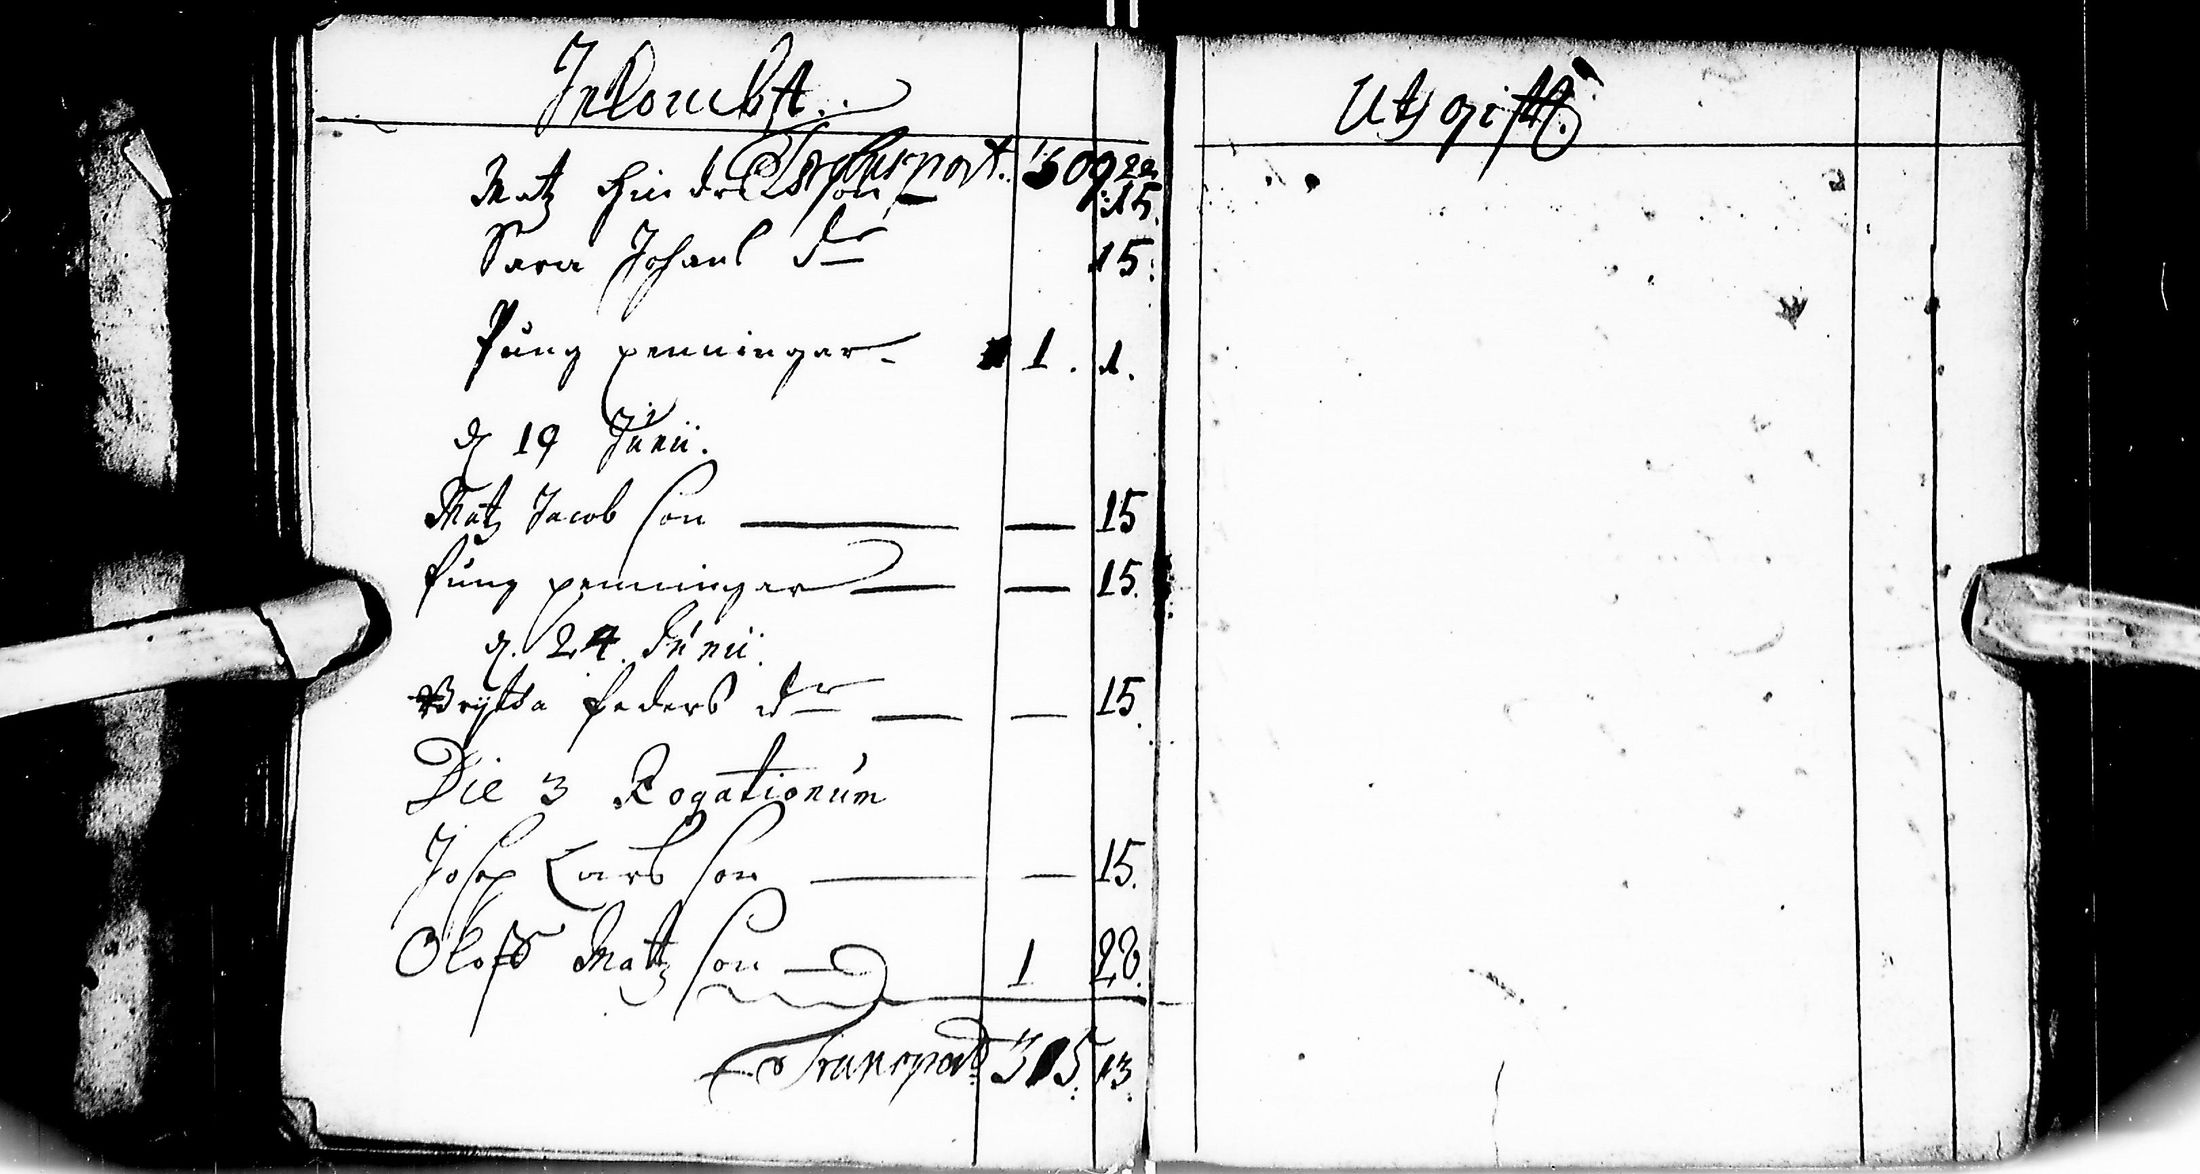 Inkombst.
Transport. 309 22
Matz Hindersson 15.
Sara Johans dr 15.
Pung penningar 1. 1.
d 19 Junii.
Matz Jacob son — — 15
Pung penningar — — 15.
d. 24. Junii.
Brytta Peders dr — — 15.
Die 3 Rogationum
Josep Lars son — — 15.
Oloff Mattz son — 1 28.
Transport 315. 13.
Utgifft.